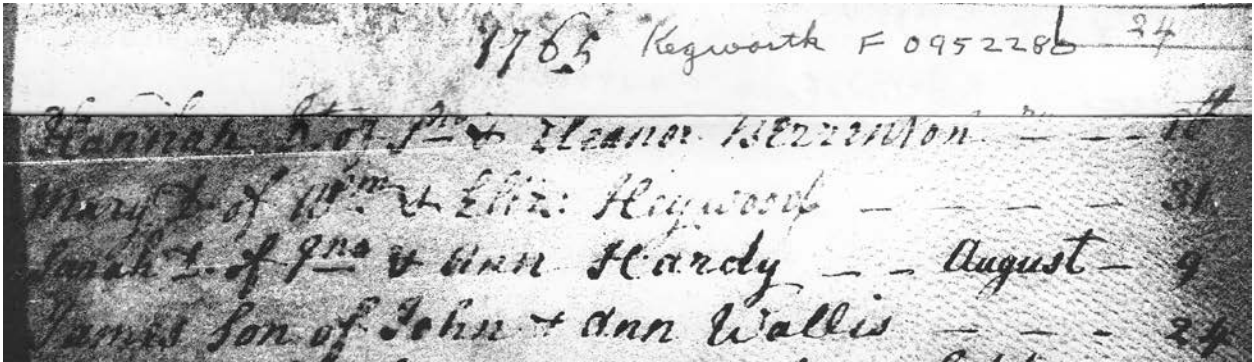 1765 Kegworth F 0952286 24
Hannah D. of Jno & Eleanor
Mary D. of Wm & Eliz: Heywood — — — — 31
Sarah D. of Jno & Ann Hardy — — August — 9
James Son of John & Ann Wallis — — — — 24